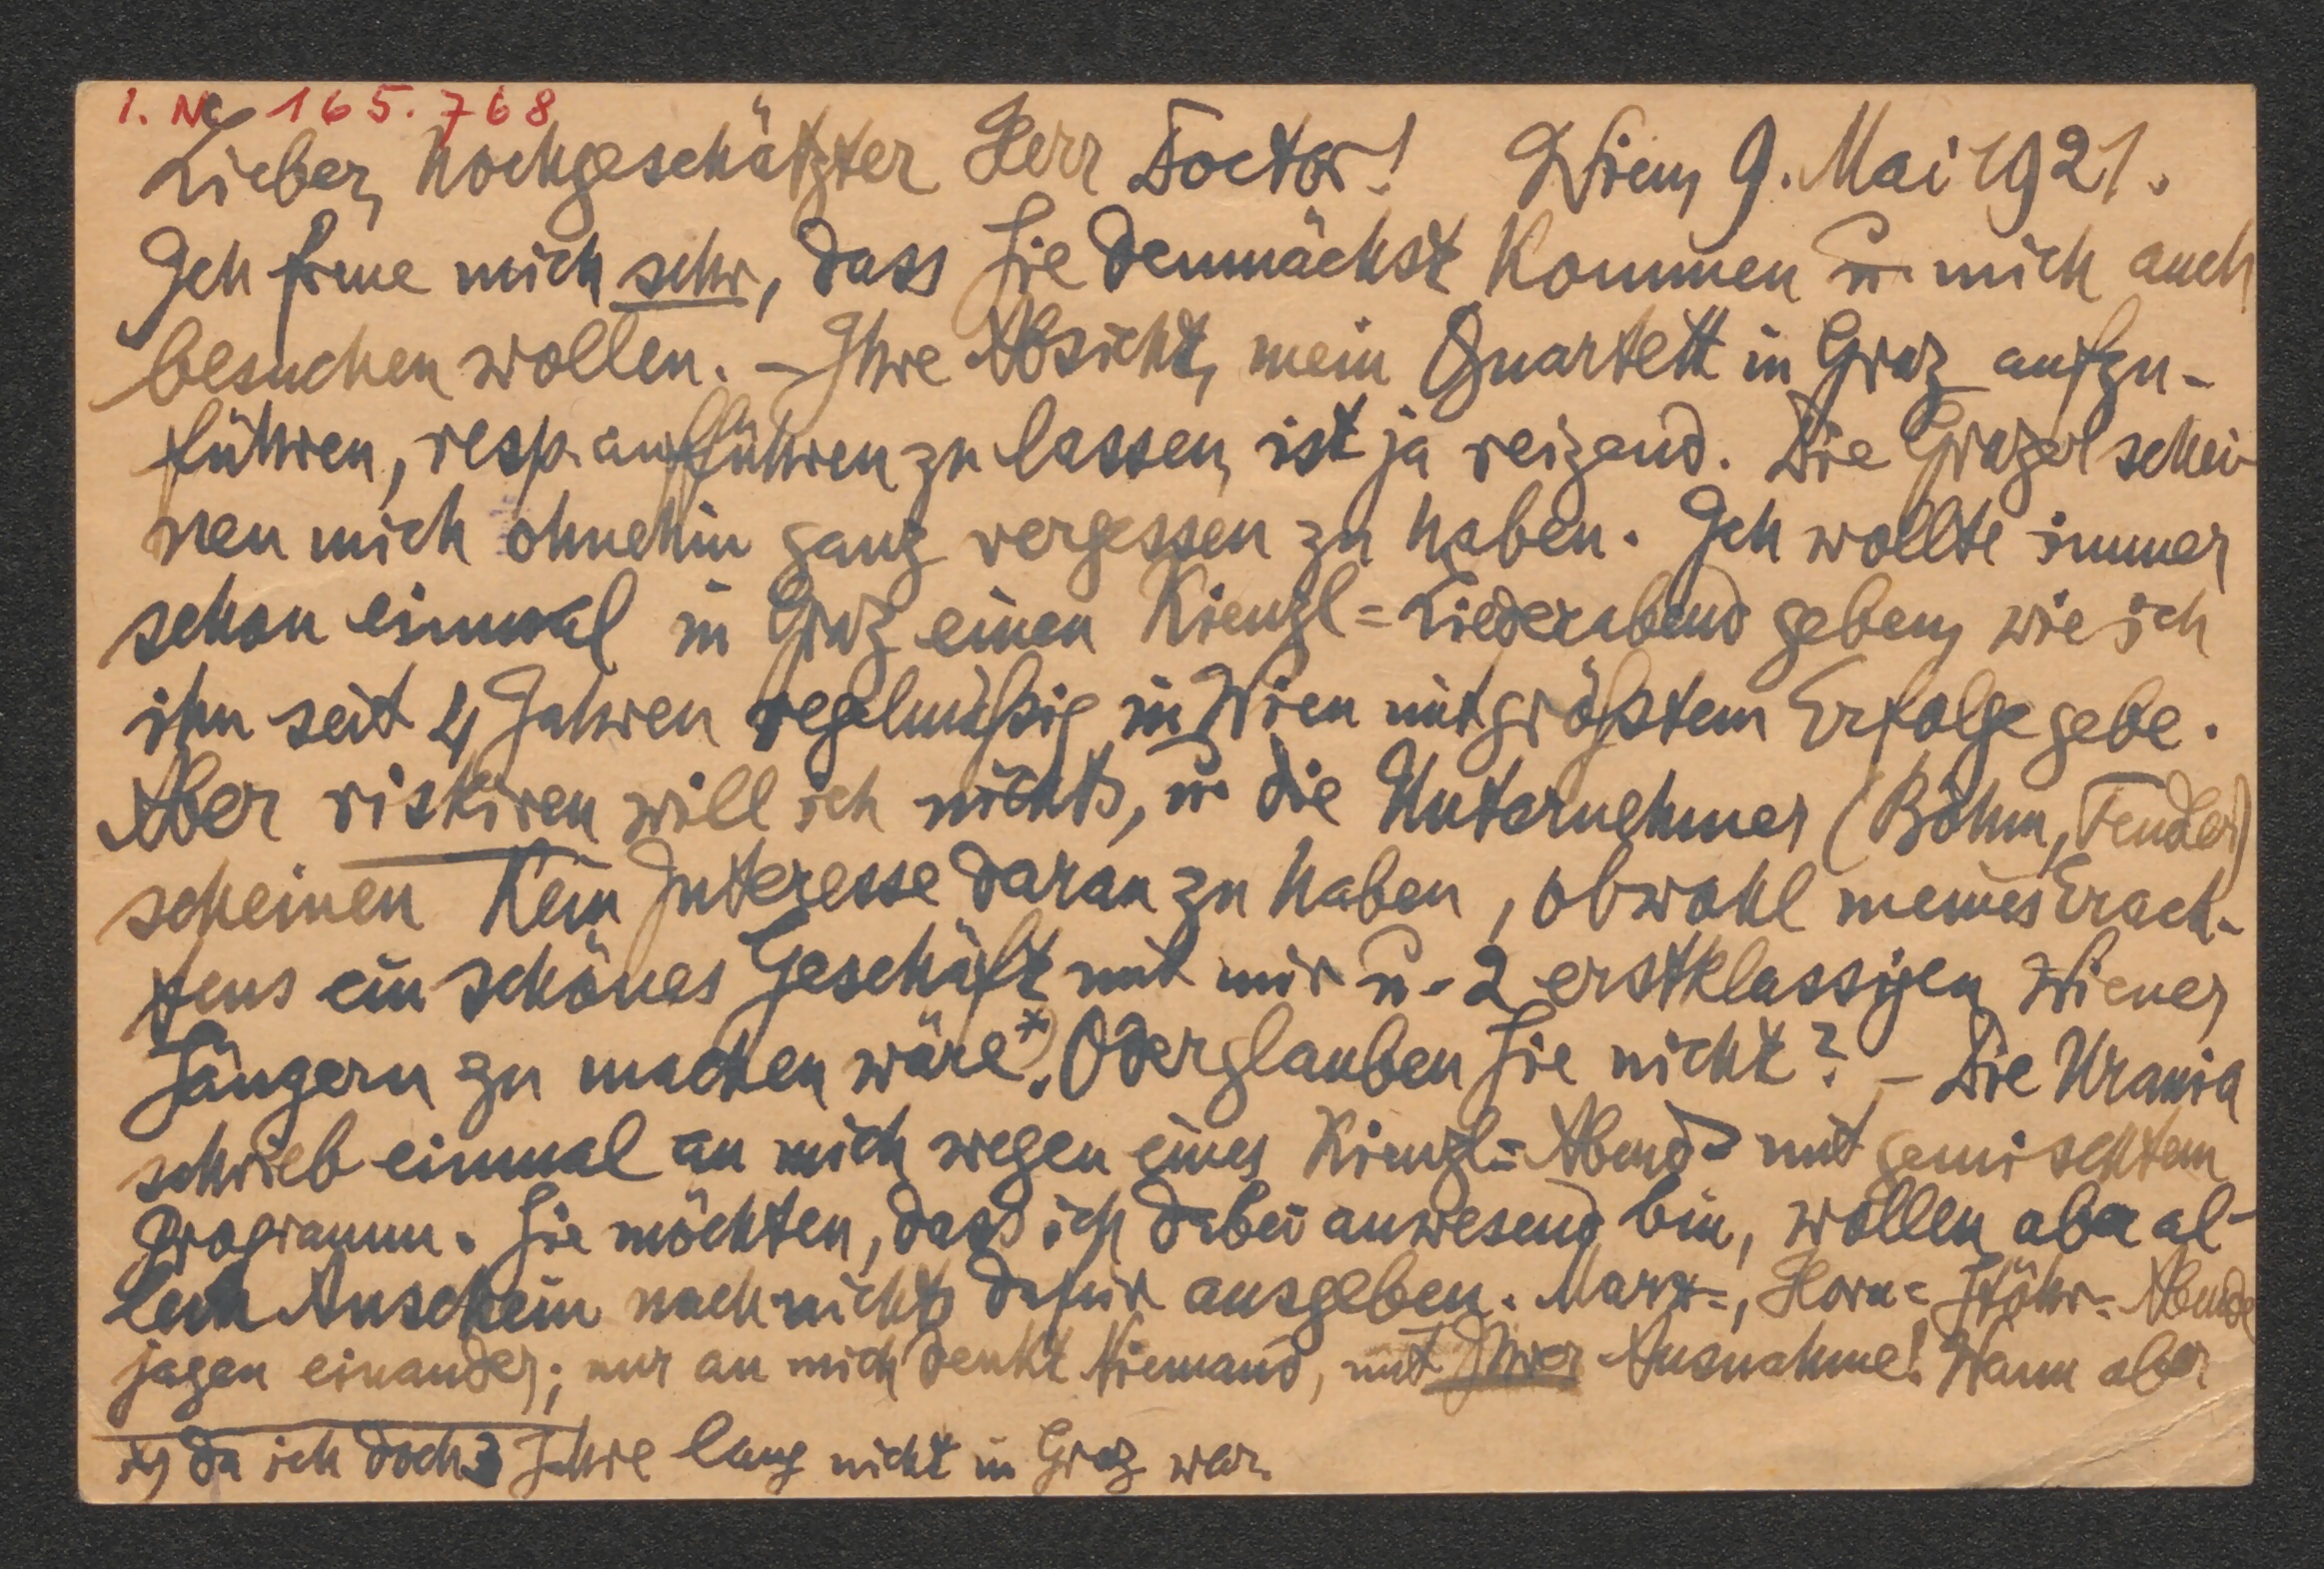 I. N. 165.768
Lieber, hochgeschätzter Herr Doctor! Wien, 9. Mai 1921.
Ich freue mich sehr, dass Sie demnächst kommen u. mich auch
besuchen wollen. – Ihre Absicht, mein Quartett in Graz aufzu-
führen, resp. aufführen zu lassen, ist ja reizend. Die Grazer schei-
nen mich ohnehin ganz vergessen zu haben. Ich wollte immer
schon einmal in Graz einen Kienzl=Liederabend geben, wie ich
ihn seit 4 Jahren regelmäßig in Wien mit größtem Erfolge gebe.
Aber riskiren will ich nichts, u. die Unternehmer (Böhm, Tender)
scheinen kein Interesse daran zu haben, obwohl meines Erach-
tens ein schönes Geschäft mit mir u. 2 erstklassigen Wiener
Sängern zu machen wäre*). Oder glauben Sie nicht? – Die Urania
schrieb einmal an mich wegen eines Kienzl=Abends mit gemischtem
Programm. Sie möchten, dass ich dabei anwesend bin, wollen aber al-
lem Anschein nach nichts dafür ausgeben. Marx=, Horn= Stöhr= Abende
jagen einander; nur an mich denkt Niemand, mit Ihrer Ausnahme! Wann aber
*) da ich doch 3 Jahre lang nicht in Graz war.